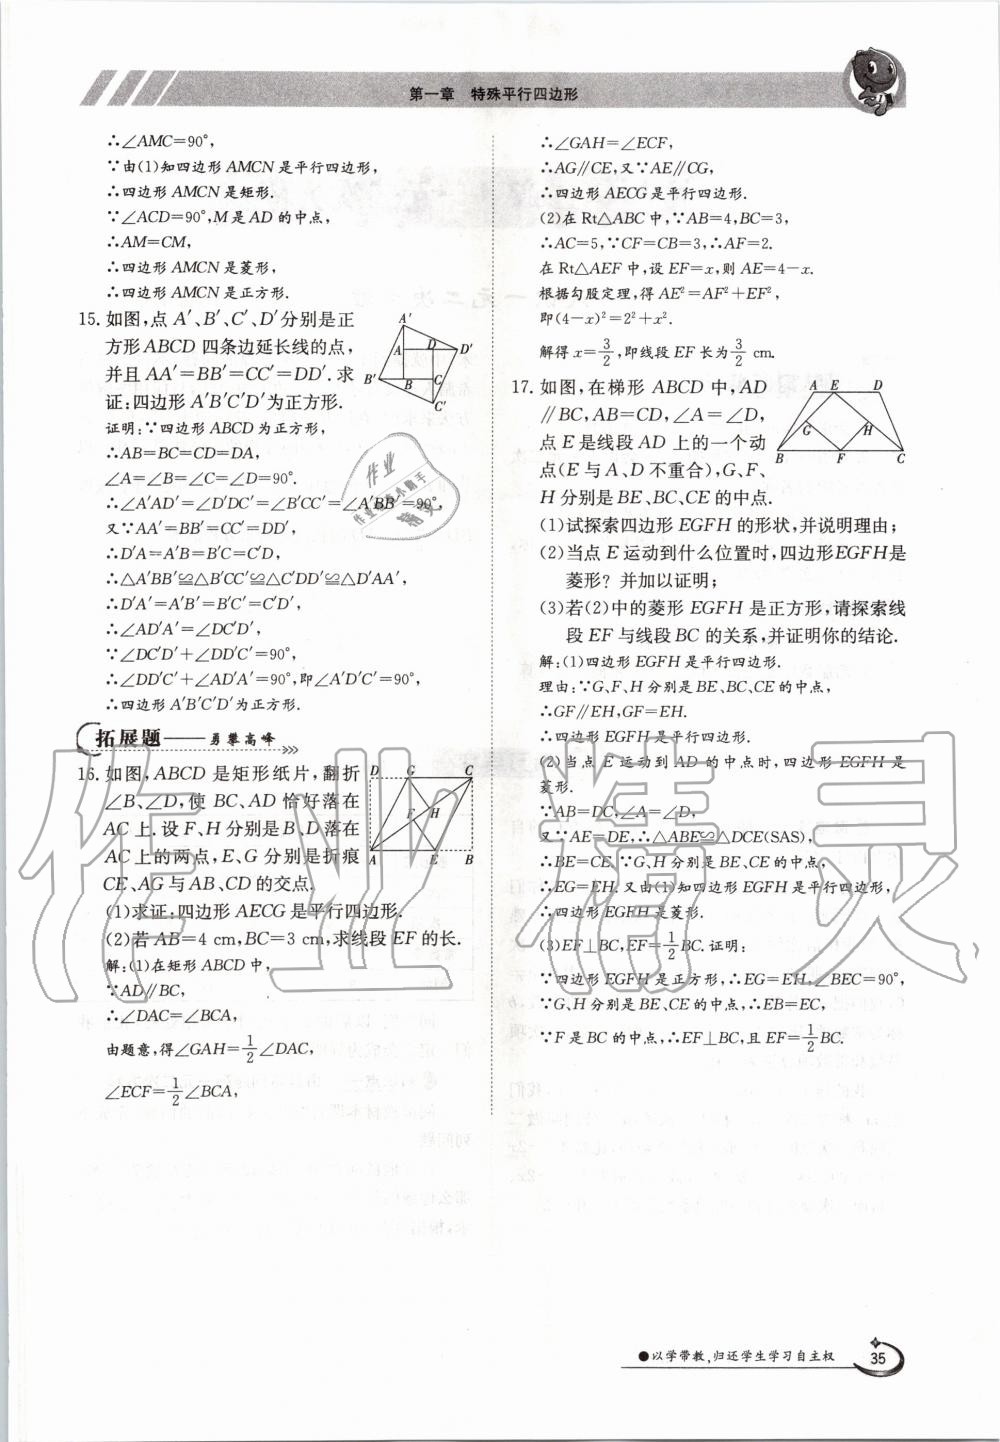 第一章 特殊平行四边形
∴∠AMC=90°,
∵由(1)知四边形 AMCN 是平行四边形,
∴四边形 AMCN 是矩形.
∵∠ACD=90°,M 是 AD 的中点,
∴AM=CM,
∴四边形 AMCN 是菱形,
∴四边形 AMCN 是正方形.
15. 如图,点 A′、B′、C′、D′分别是正
方形 ABCD 四条边延长线的点,
并且 AA′=BB′=CC′=DD′. 求
证:四边形 A′B′C′D′为正方形.
A′
A D D′
B′ B C
C′
证明:∵四边形 ABCD 为正方形,
∴AB=BC=CD=DA,
∠A=∠B=∠C=∠D=90°.
∴∠A′AD′=∠D′DC′=∠B′CC′=∠A′BB′=90°,
又∵AA′=BB′=CC′=DD′,
∴D′A=A′B=B′C=C′D,
∴△A′BB′≌△B′CC′≌△C′DD′≌△D′AA′,
∴D′A′=A′B′=B′C′=C′D′,
∴∠AD′A′=∠DC′D′,
∵∠DC′D′+∠DD′C′=90°,
∴∠DD′C′+∠AD′A′=90°,即∠A′D′C′=90°,
∴四边形 A′B′C′D′为正方形.
拓展题——勇攀高峰
16. 如图,ABCD 是矩形纸片,翻折
∠B、∠D,使 BC、AD 恰好落在
AC 上. 设 F、H 分别是 B、D 落在
AC 上的两点,E、G 分别是折痕
CE、AG 与 AB、CD 的交点.
D G C
F H
A E B
(1)求证:四边形 AECG 是平行四边形.
(2)若 AB=4 cm,BC=3 cm,求线段 EF 的长.
解:(1)在矩形 ABCD 中,
∵AD∥BC,
∴∠DAC=∠BCA,
由题意,得∠GAH=1/2∠DAC,
∠ECF=1/2∠BCA,
∴∠GAH=∠ECF,
∴AG∥CE,又∵AE∥CG,
∴四边形 AECG 是平行四边形.
(2)在 Rt△ABC 中,∵AB=4,BC=3,
∴AC=5,∵CF=CB=3,∴AF=2.
在 Rt△AEF 中,设 EF=x,则 AE=4-x.
根据勾股定理,得 AE²=AF²+EF²,
即(4-x)²=2²+x².
解得 x=3/2,即线段 EF 长为 3/2 cm.
17. 如图,在梯形 ABCD 中,AD
∥BC,AB=CD,∠A=∠D,
点 E 是线段 AD 上的一个动
点(E 与 A、D 不重合),G、F、
H 分别是 BE、BC、CE 的中点.
A E D
G H
B F C
(1)试探索四边形 EGFH 的形状,并说明理由;
(2)当点 E 运动到什么位置时,四边形 EGFH 是
菱形? 并加以证明;
(3)若(2)中的菱形 EGFH 是正方形,请探索线
段 EF 与线段 BC 的关系,并证明你的结论.
解:(1)四边形 EGFH 是平行四边形.
理由:∵G、F、H 分别是 BE、BC、CE 的中点,
∴GF∥EH,GF=EH.
∴四边形 EGFH 是平行四边形.
(2)当点 E 运动到 AD 的中点时,四边形 EGFH 是
菱形.
∵AB=DC,∠A=∠D,
又∵AE=DE,∴△ABE≌△DCE(SAS),
∴BE=CE,∵G、H 分别是 BE、CE 的中点,
∴EG=EH. 又由(1)知四边形 EGFH 是平行四边形,
∴四边形 EGFH 是菱形.
(3)EF⊥BC,EF=1/2BC. 证明:
∵四边形 EGFH 是正方形,∴EG=EH,∠BEC=90°,
∵G、H 分别是 BE、CE 的中点,∴EB=EC,
∵F 是 BC 的中点,∴EF⊥BC,且 EF=1/2BC.
作业精灵
●以学带教,归还学生学习自主权
35